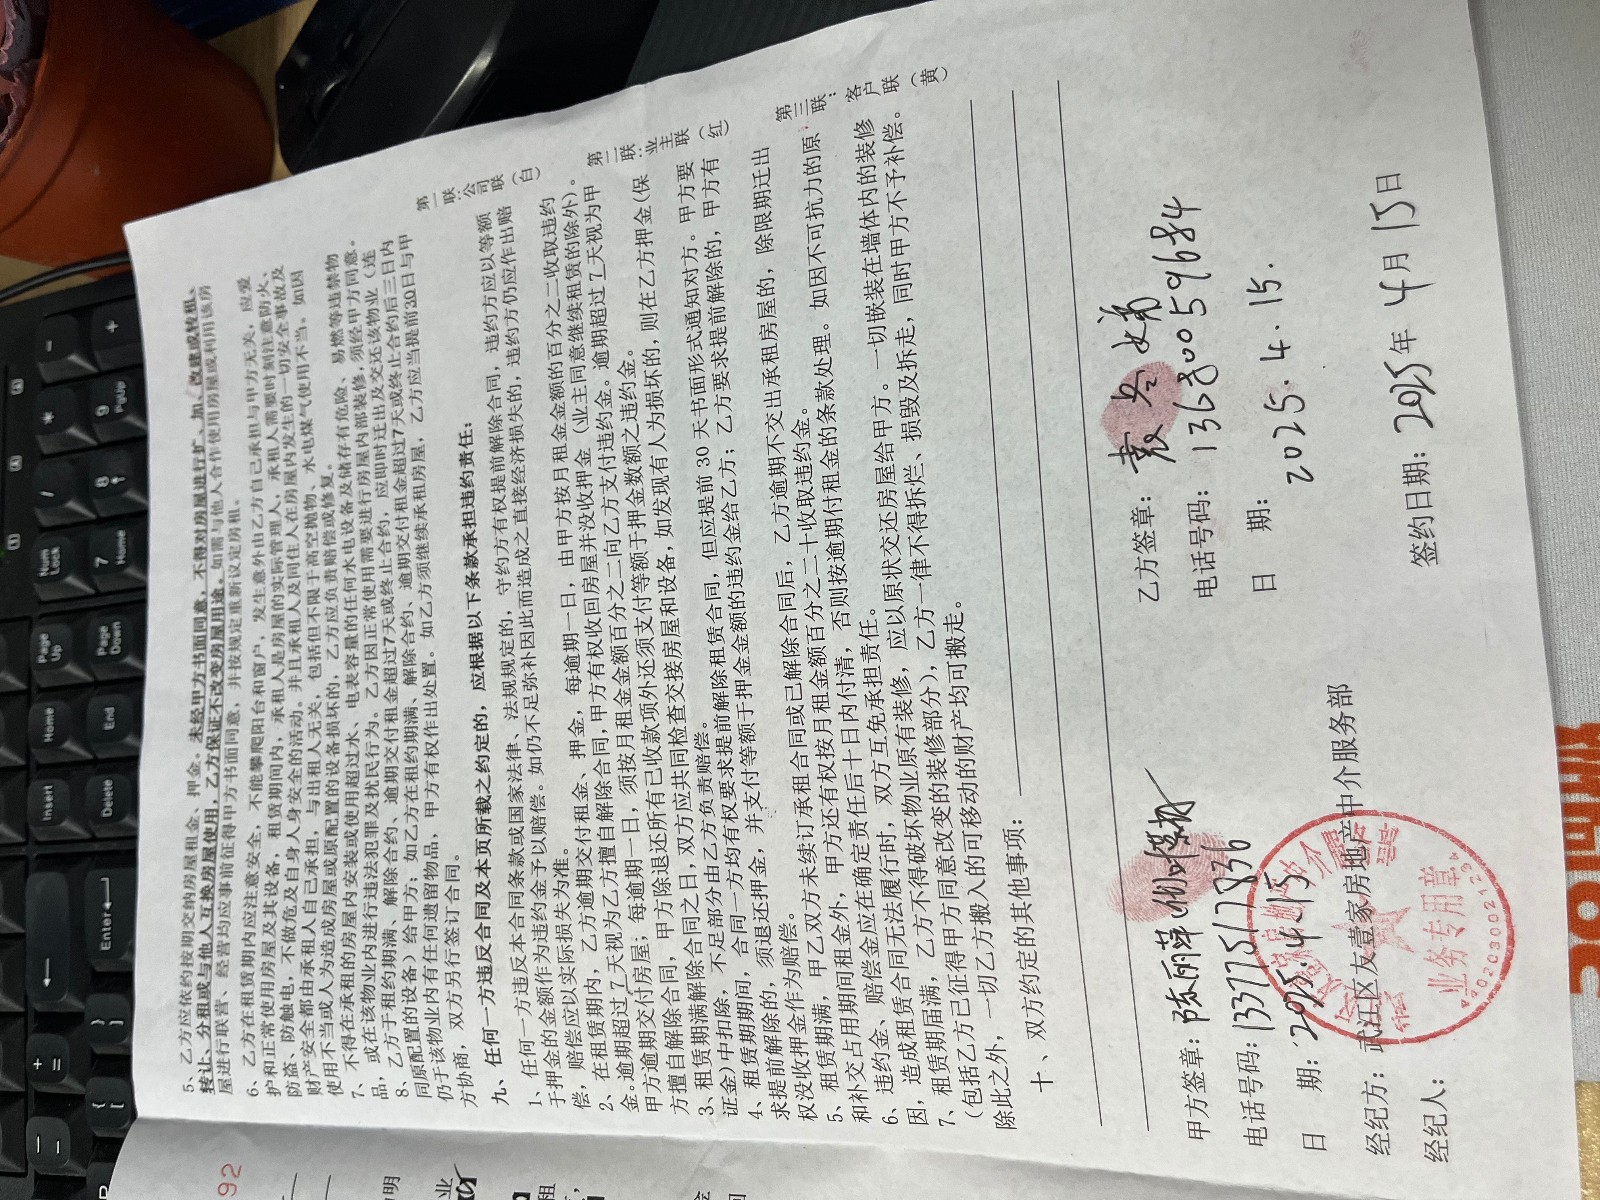 5、乙方应依约按期交纳房屋租金、押金。未经甲方书面同意，不得对房屋进行扩、加、改建或转租、
转让、分租或与他人互换房屋使用，乙方保证不改变房屋用途。如需与他人合作使用房屋或利用该房
屋进行联营、经营均应事前征得甲方书面同意，并按规定重新议定房租。
6、乙方在租赁期内应注意安全，不能攀爬阳台和窗户，发生意外由乙方自己承担与甲方无关，应爱
护和正常使用房屋及其设备，租赁期间内，承租人是房屋的实际管理人，承租人需要时刻注意防火、
防盗、防触电，不做危及自身人身安全的活动。并且承租人及同住人在房屋内发生的一切安全事故及
财产安全都由承租人自己承担，与出租人无关，包括但不限于高空抛物、水电煤气使用不当。如因
使用不当或人为造成房屋或原配置的设备损坏的，乙方应负责赔偿或修复。
7、不得在承租的房屋内安装或使用超过水、电表容量的任何水电设备及储存有危险、易燃等违禁物
品，或在该物业内进行违法犯罪及扰民行为。乙方因正常使用需要进行房屋内部装修，须经甲方同意。
8、乙方于租约期满、解除合约、逾期交付租金超过7天或终止合约，应即时迁出及交还该物业（连
同原配置的设备）给甲方；如乙方在租约期满、解除合约、逾期交付租金超过7天或终止合约后三日内
仍于该物业内有任何遗留物品，甲方有权作出处置。如乙方须继续承租房屋，乙方应当提前30日与甲
方协商，双方另行签订合同。
九、任何一方违反合同及本页所载之约定的，应根据以下条款承担违约责任：
1、任何一方违反本合同条款或国家法律、法规规定的，守约方有权提前解除合同，违约方应以等额
于押金的金额作为违约金予以赔偿。如仍不足弥补因此而造成之直接经济损失的，违约方仍应作出赔
偿，赔偿应以实际损失为准。
2、在租赁期内，乙方逾期交付租金、押金，每逾期一日，由甲方按月租金金额的百分之二收取违约
金。逾期超过7天视为乙方擅自解除合同，甲方有权收回房屋并没收押金（业主同意继续租赁的除外）。
甲方逾期交付房屋；每逾期一日，须按月租金金额百分之二向乙方支付违约金。逾期超过7天视为甲
方擅自解除合同，甲方除退还所有已收款项外还须支付等额于押金数额之违约金。
3、租赁期满解除合同之日，双方应共同检查交接房屋和设备，如发现有人为损坏的，则在乙方押金（保
证金）中扣除，不足部分由乙方负责赔偿。
4、租赁期期间，合同一方均有权要求提前解除租赁合同，但应提前30天书面形式通知对方。甲方要
求提前解除的，须退还押金，并支付等额于押金金额的违约金给乙方；乙方要求提前解除的，甲方有
权没收押金作为赔偿。
5、租赁期满，甲乙双方未续订承租合同或已解除合同后，乙方逾期不交出承租房屋的，除限期迁出
和补交占用期间租金外，甲方还有权按月租金额百分之二十收取违约金。
6、违约金、赔偿金应在确定责任后十日内付清，否则按逾期付租金的条款处理。如因不可抗力的原
因，造成租赁合同无法履行时，双方互免承担责任。
7、租赁期届满，乙方不得破坏物业原有装修，应以原状交还房屋给甲方。一切嵌装在墙体内的装修
（包括乙方已征得甲方同意改变的装修部分），乙方一律不得拆烂、损毁及拆走，同时甲方不予补偿。
除此之外，一切乙方搬入的可移动的财产均可搬走。
十、双方约定的其他事项：
第一联：公司联（白）
第二联：业主联（红）
第三联：客户联（黄）
甲方签章：陈丽萍
电话号码：1377517836
日 期：2025.4.15
经纪方：武江区友壹家房地产中介服务部
经纪人：
乙方签章：
电话号码：13680059684
日 期：2025.4.15.
签约日期：2025年4月15日
业务专用章
92